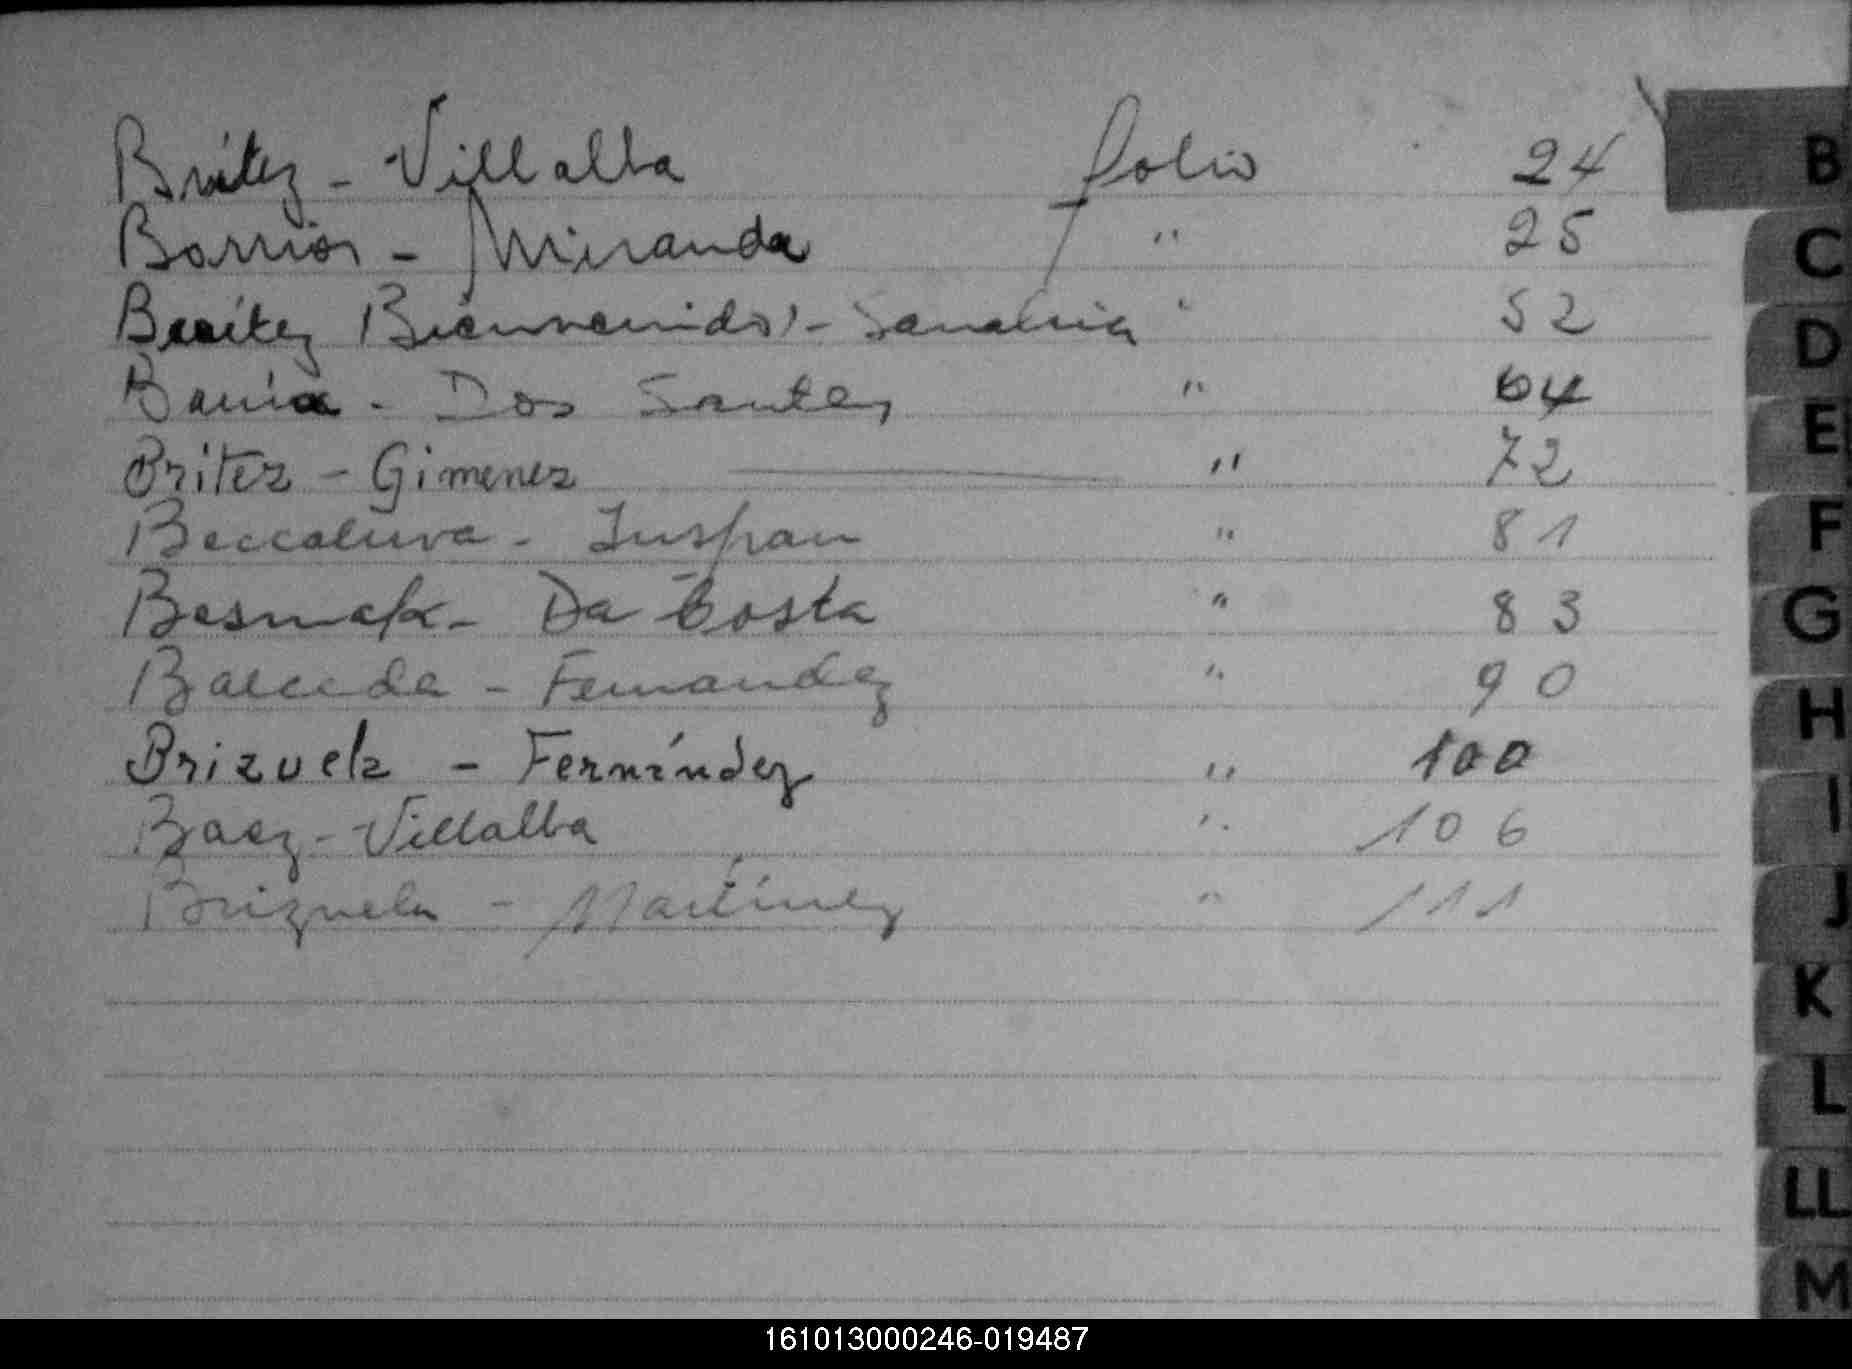 Brítez - Villalba folio 24
Barrios - Miranda " 25
Benítez Bienvenido - Sanabria " 52
- Dos Santos " 64
Britez - Gimenez " 72
Beccaluva - " 81
Besmak - Da Costa " 83
Balceda - Fernandez " 90
Brizuela - Fernández " 100
Baez - Villalba " 106
Brizuela - Martínez " 111
B
C
D
E
F
G
H
I
J
K
L
LL
M
161013000246-019487